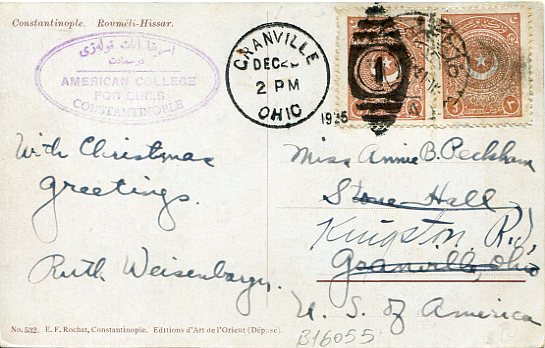 Constantinople. Rouméli-Hissar.
AMERICAN COLLEGE
FOR GIRLS
CONSTANTINOPLE
GRANVILLE
DEC
2 PM
OHIO
1925
1
With Christmas
greetings.
Ruth Weisenburger.
Miss Annie B. Peckham
Stone Hall
Kingston, R.I.
Granville, Ohio
U. S. of America
B16055
No. 532. E. F. Rochat, Constantinople. Editions d'Art de l'Orient (Déposé).